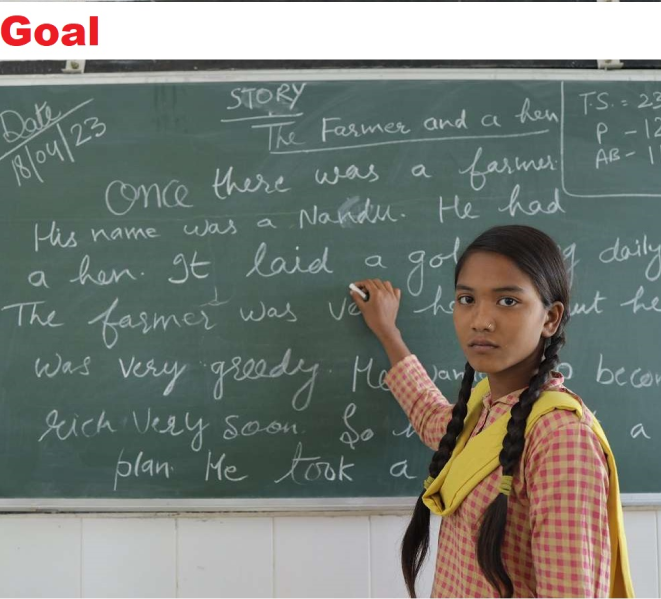 Goal
Date
18/04/23
STORY
The Farmer and a hen
T.S. : 23
P - 12
AB - 1
Once there was a farmer
His name was a Nandu. He had
a hen. It laid a gol daily
The farmer was ve he
was very greedy. He wan becom
rich very soon. So a
plan. He took a